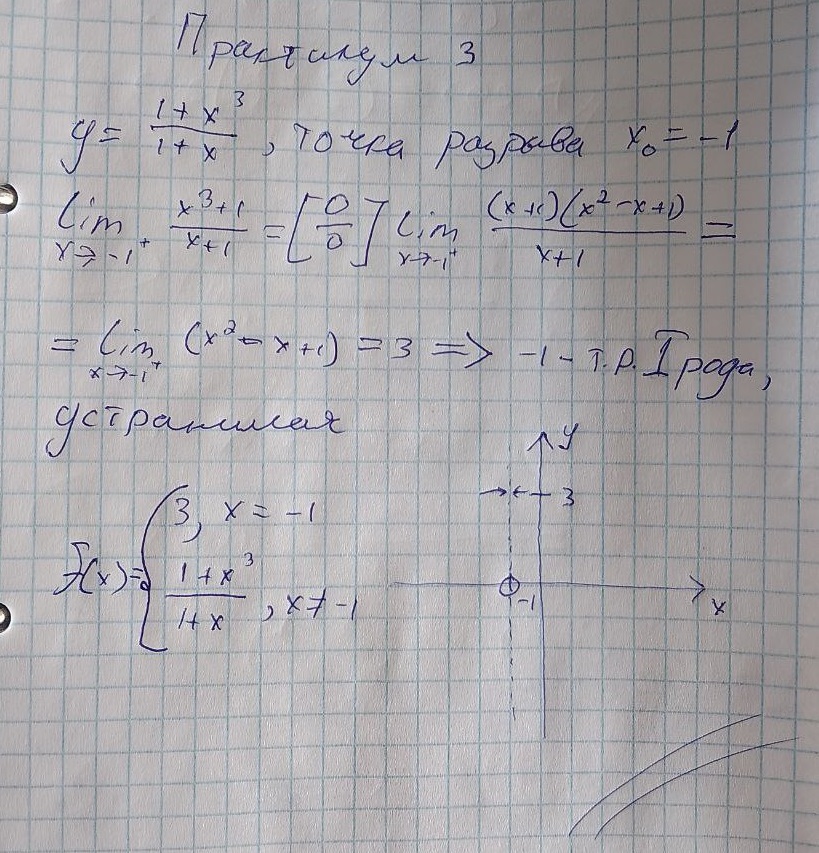 Практикум 3
y = (1 + x³)/(1 + x), точка разрыва x₀ = -1
lim x→-1⁺ (x³+1)/(x+1) = [0/0] lim x→-1⁺ (x+1)(x²-x+1)/(x+1) =
= lim x→-1⁺ (x²-x+1) = 3 => -1 - т.р. I рода,
устранимая
f̃(x) = { 3, x = -1
(1+x³)/(1+x), x ≠ -1
y
3
-1
x